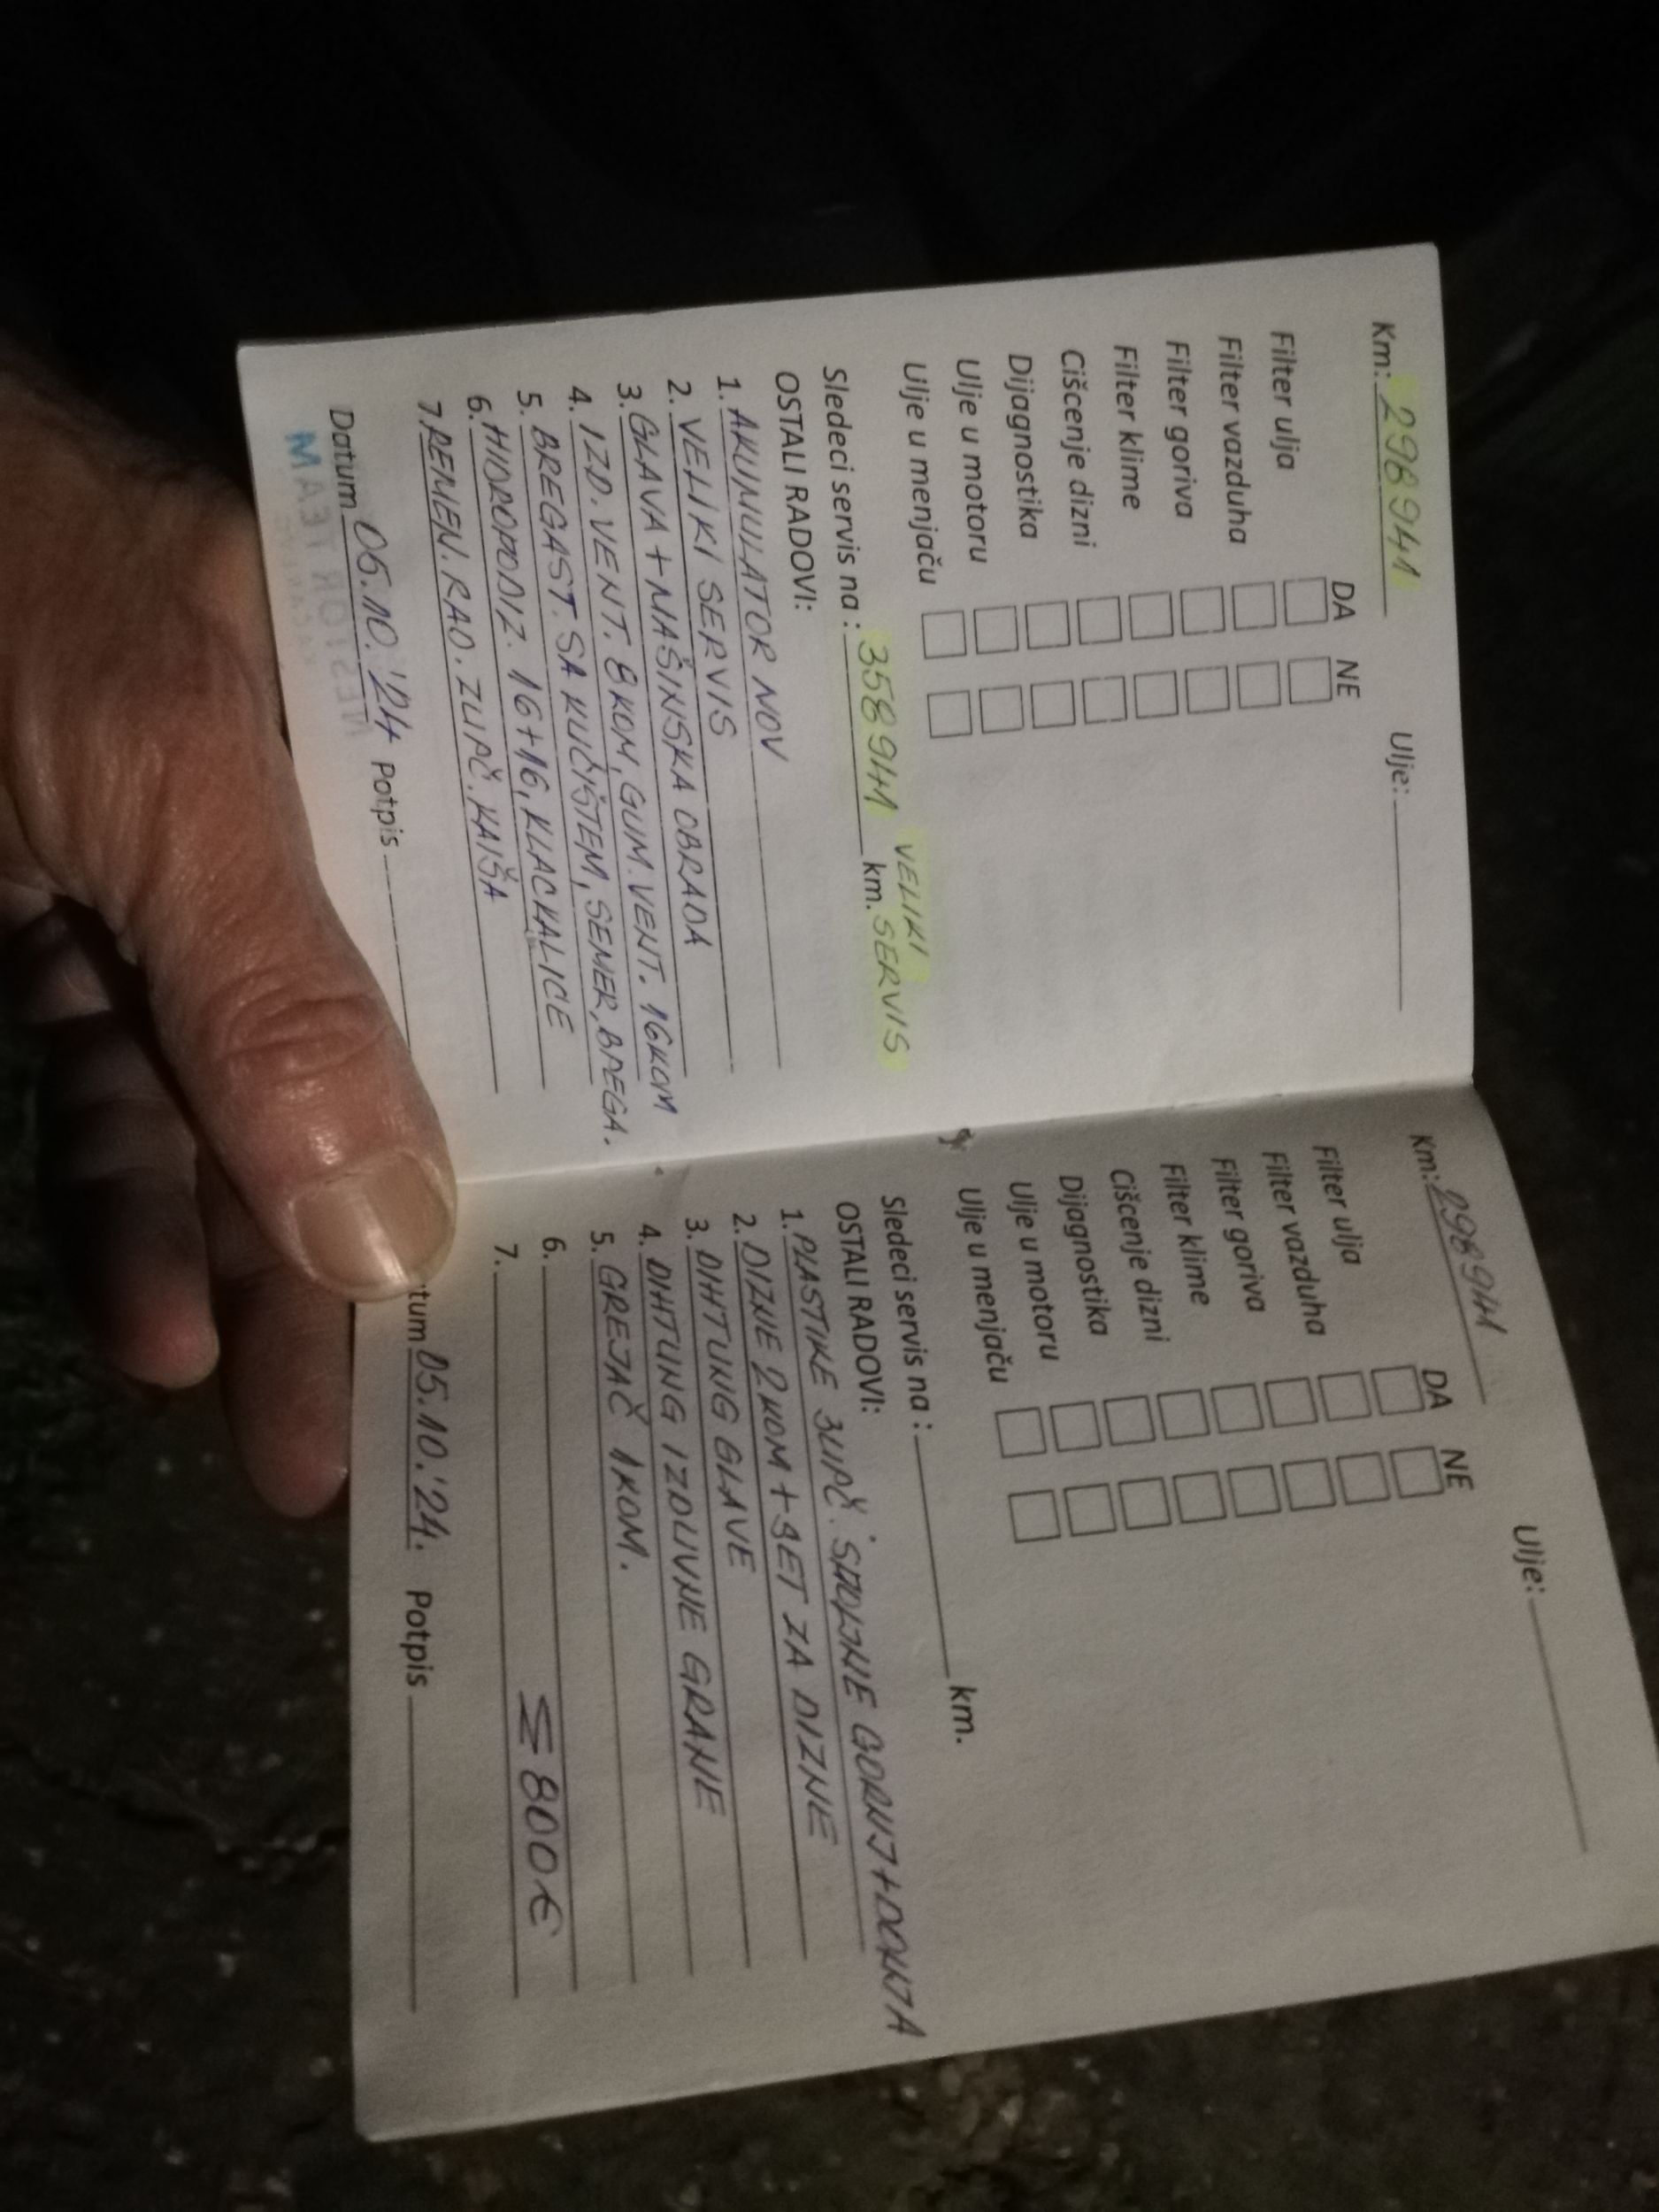 Km: 298941 Ulje:
DA NE
Filter ulja
Filter vazduha
Filter goriva
Filter klime
Cišcenje dizni
Dijagnostika
Ulje u motoru
Ulje u menjaču
VELIKI
Sledeci servis na : 358941 km. SERVIS
OSTALI RADOVI:
1. AKUMULATOR NOV
2. VELIKI SERVIS
3. GLAVA + MAŠINSKA OBRADA
4. IZD. VENT. 8 KOM, GUM. VENT. 16 KOM
5. BREGAST. SA KUĆIŠTEM, SEMER, BREGA.
6. HIDROPODIZ. 16+16, KLACKALICE
7. REMEN. RAD. ZUPČ. KAIŠA
Datum 05.10.'24 Potpis
NESTOR TEAM
Km: 298941 Ulje:
DA NE
Filter ulja
Filter vazduha
Filter goriva
Filter klime
Cišcenje dizni
Dijagnostika
Ulje u motoru
Ulje u menjaču
Sledeci servis na : km.
OSTALI RADOVI:
1. PLASTIKE ZUPČ. SPOLJNE GORNJ+DONJA
2. DIZNE 2 KOM + SET ZA DIZNE
3. DIHTUNG GLAVE
4. DIHTUNG IZDUVNE GRANE
5. GREJAČ 1 KOM.
6.
7. Σ 800€
tum 05.10.'24. Potpis